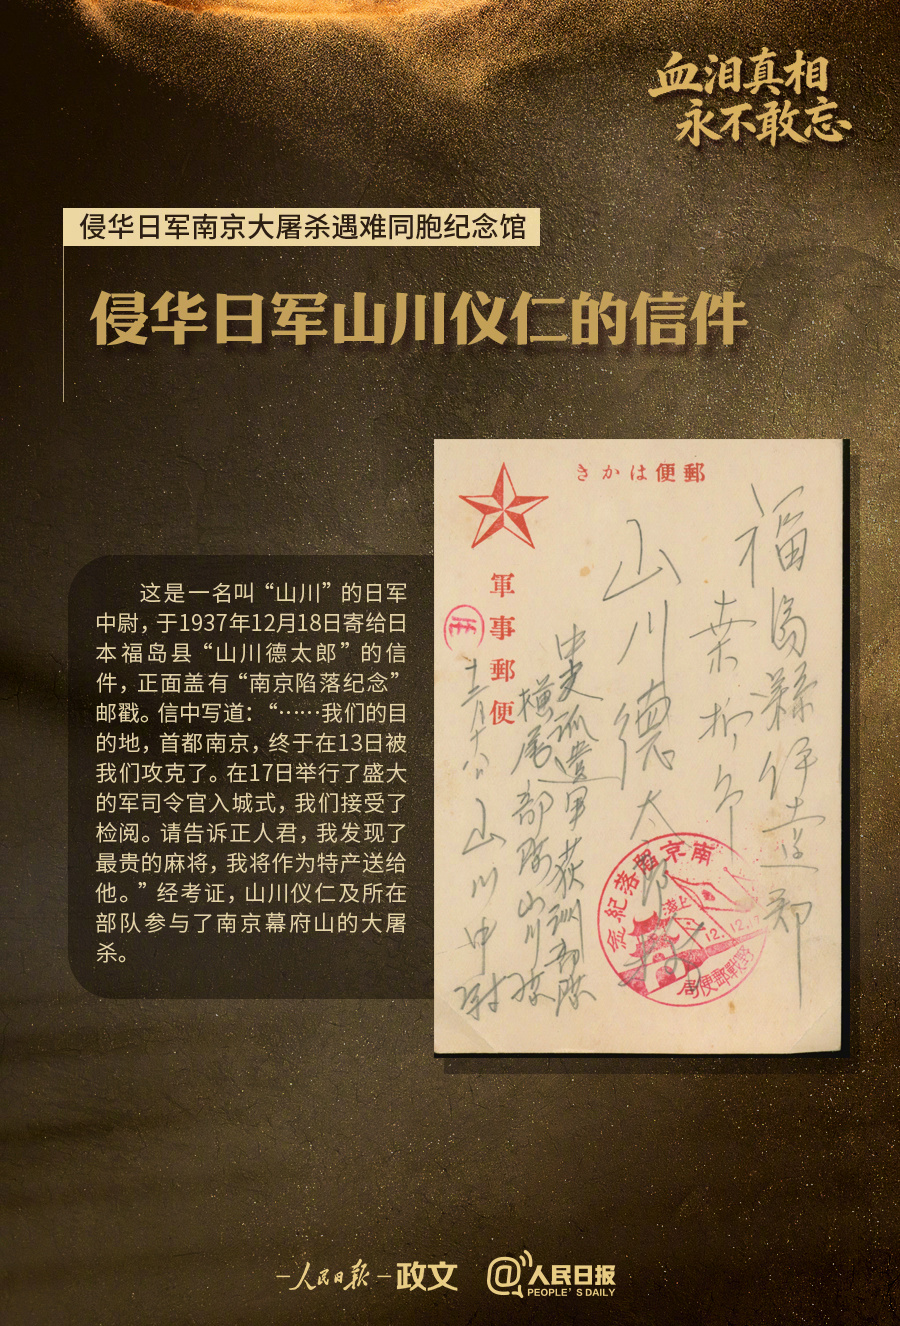 血泪真相
永不敢忘
侵华日军南京大屠杀遇难同胞纪念馆
侵华日军山川仪仁的信件
这是一名叫“山川”的日军
中尉，于1937年12月18日寄给日
本福岛县“山川德太郎”的信
件，正面盖有“南京陷落纪念”
邮戳。信中写道：“……我们的目
的地，首都南京，终于在13日被
我们攻克了。在17日举行了盛大
的军司令官入城式，我们接受了
检阅。请告诉正人君，我发现了
最贵的麻将，我将作为特产送给
他。”经考证，山川仪仁及所在
部队参与了南京幕府山的大屠
杀。
きかは便郵
福島縣伊達郡
山川德太郎
軍事郵便
中支派遣軍荻洲部隊
部隊山川隊
十二月十八日
山川中尉
南京陷落紀念
上海
12.12.17
野戰郵便局
人民日报
政文
@人民日报
PEOPLE'S DAILY